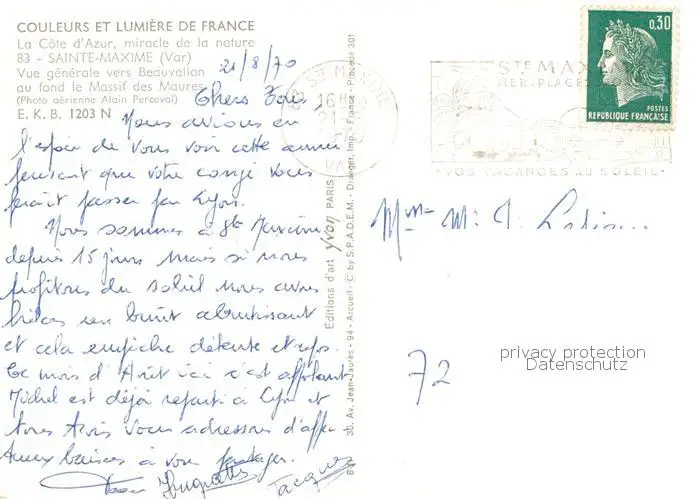 COULEURS ET LUMIÈRE DE FRANCE
La Côte d'Azur, miracle de la nature
83 - SAINTE-MAXIME (Var)
Vue générale vers Beauvallon
au fond le Massif des Maures
(Photo aérienne Alain Perceval)
E. K. B. 1203 N
21/8/70
Chers Tous
Nous avions eu
l'espoir de vous voir cette année
pensant que votre congé vous
ferait passer par Lyon.
Nous sommes à Ste Maxime
depuis 15 jours mais si nous
profitons du soleil nous avons
hélas un bruit abrutissant
et cela empêche détente et repos.
Ce mois d'Août ici c'est affolant
Michel est déjà reparti à Lyon et
tous trois vous adressons d'affec
tueux baisers à vous partager.
Huguette
Jacques
Editions d'art yvon PARIS
3b. Av. Jean-Jaurès - 94 - Arcueil - © by S.P.A.D.E.M. - Draeger, Imp., France - Procédé 301
83 STE MAXIME
16 H
21-8
VAR
STE MAXIME
MER-PLAGE
VOS VACANCES AU SOLEIL
0,30
POSTES
REPUBLIQUE FRANÇAISE
Mme M.
72
privacy protection
Datenschutz